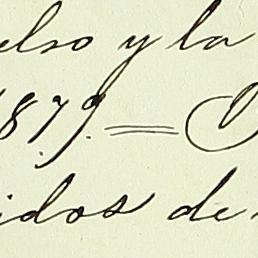 elso y la
1879. =
idos de